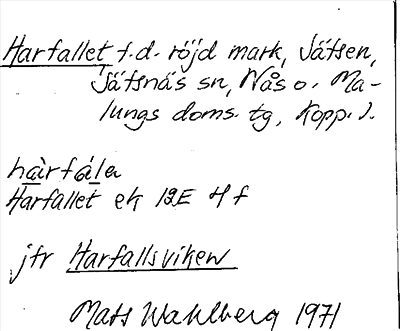 Harfallet f.d. röjd mark, Jätsen,
Jätsnäs sn, Nås o. Ma-
lungs doms. tg, Kopp. l.
hàrfála
Harfallet ek 12E 4f
jfr Harfallsviken
Mats Wahlberg 1971